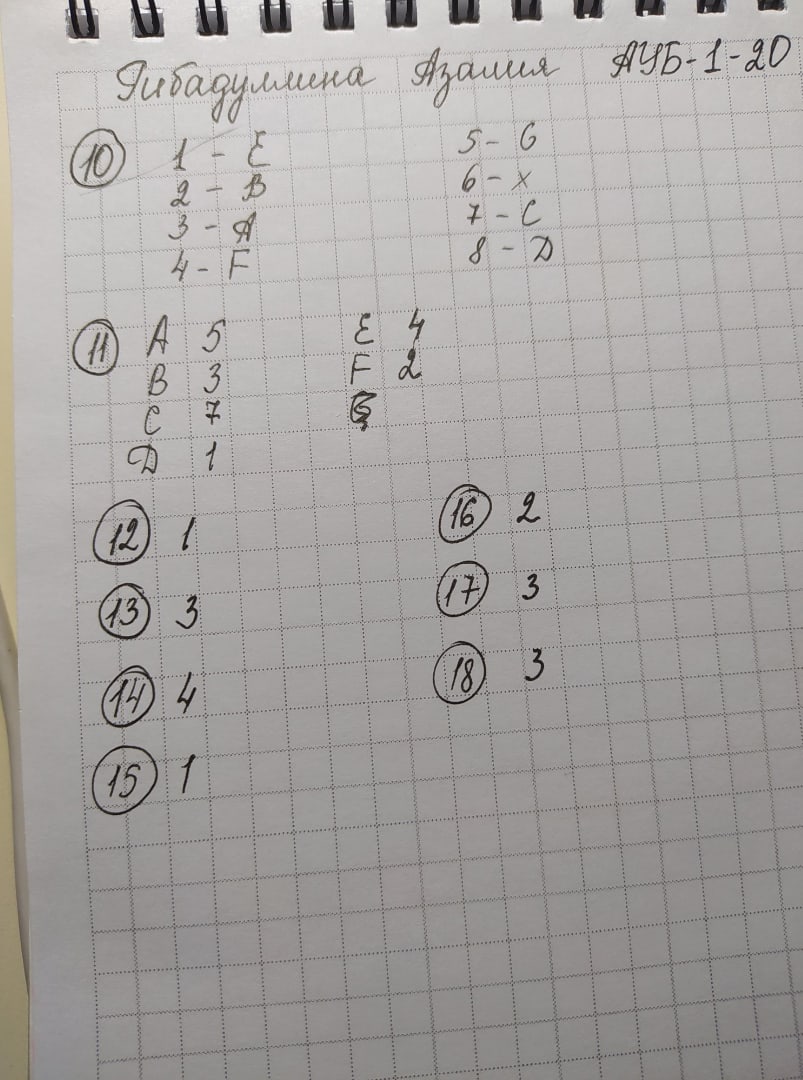 Гибадуллина Азалия АУБ-1-20
10 1 - E 5 - G
2 - B 6 - x
3 - A 7 - C
4 - F 8 - D
11 A 5 E 4
B 3 F 2
C 7
D 1
12 1 16 2
13 3 17 3
14 4 18 3
15 1